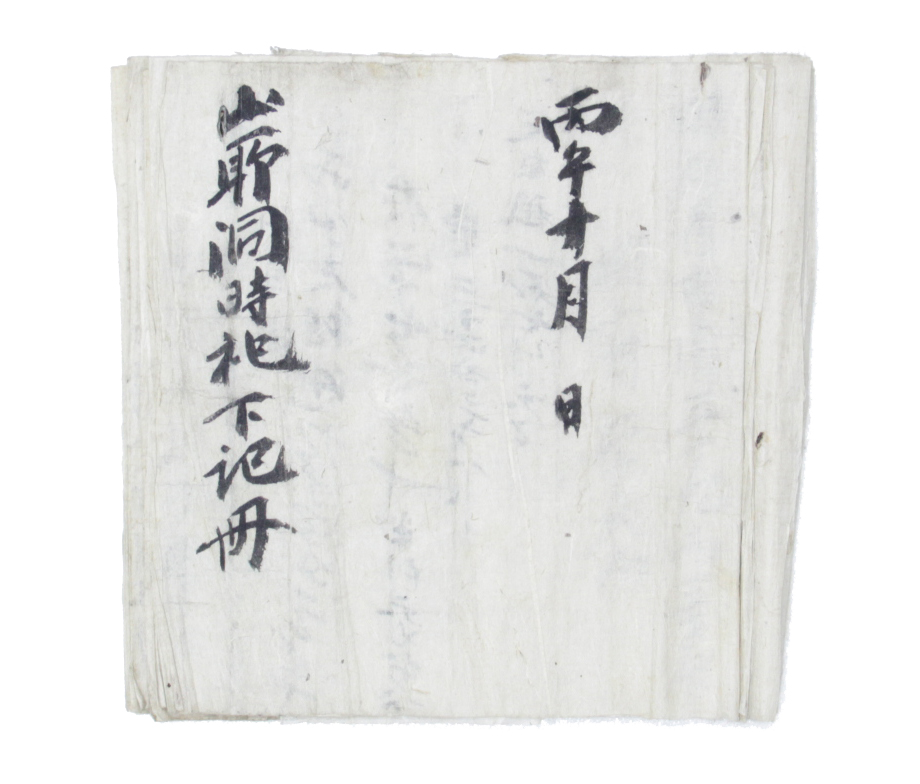 丙午十月 日
山耶洞時祀下記冊